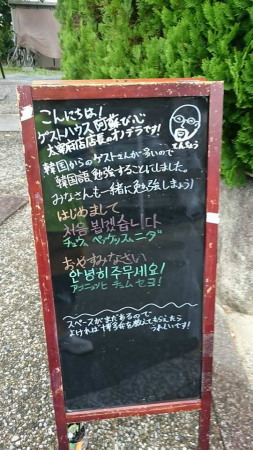 こんにちは!
ゲストハウス阿蘇び心
太宰府店店長のオノデラです!
てんちょう
韓国からのゲストさんが多いので
韓国語勉強することにしました。
みなさんも一緒に勉強しましょう!
はじめまして
처음 뵙겠습니다
チョウム ペッケッスムニダ
おやすみなさい
안녕히 주무세요!
アンニョンヒ チュムセヨ!
スペースがまだあるので
よければ博多弁を教えてもらえたら
うれしいです!